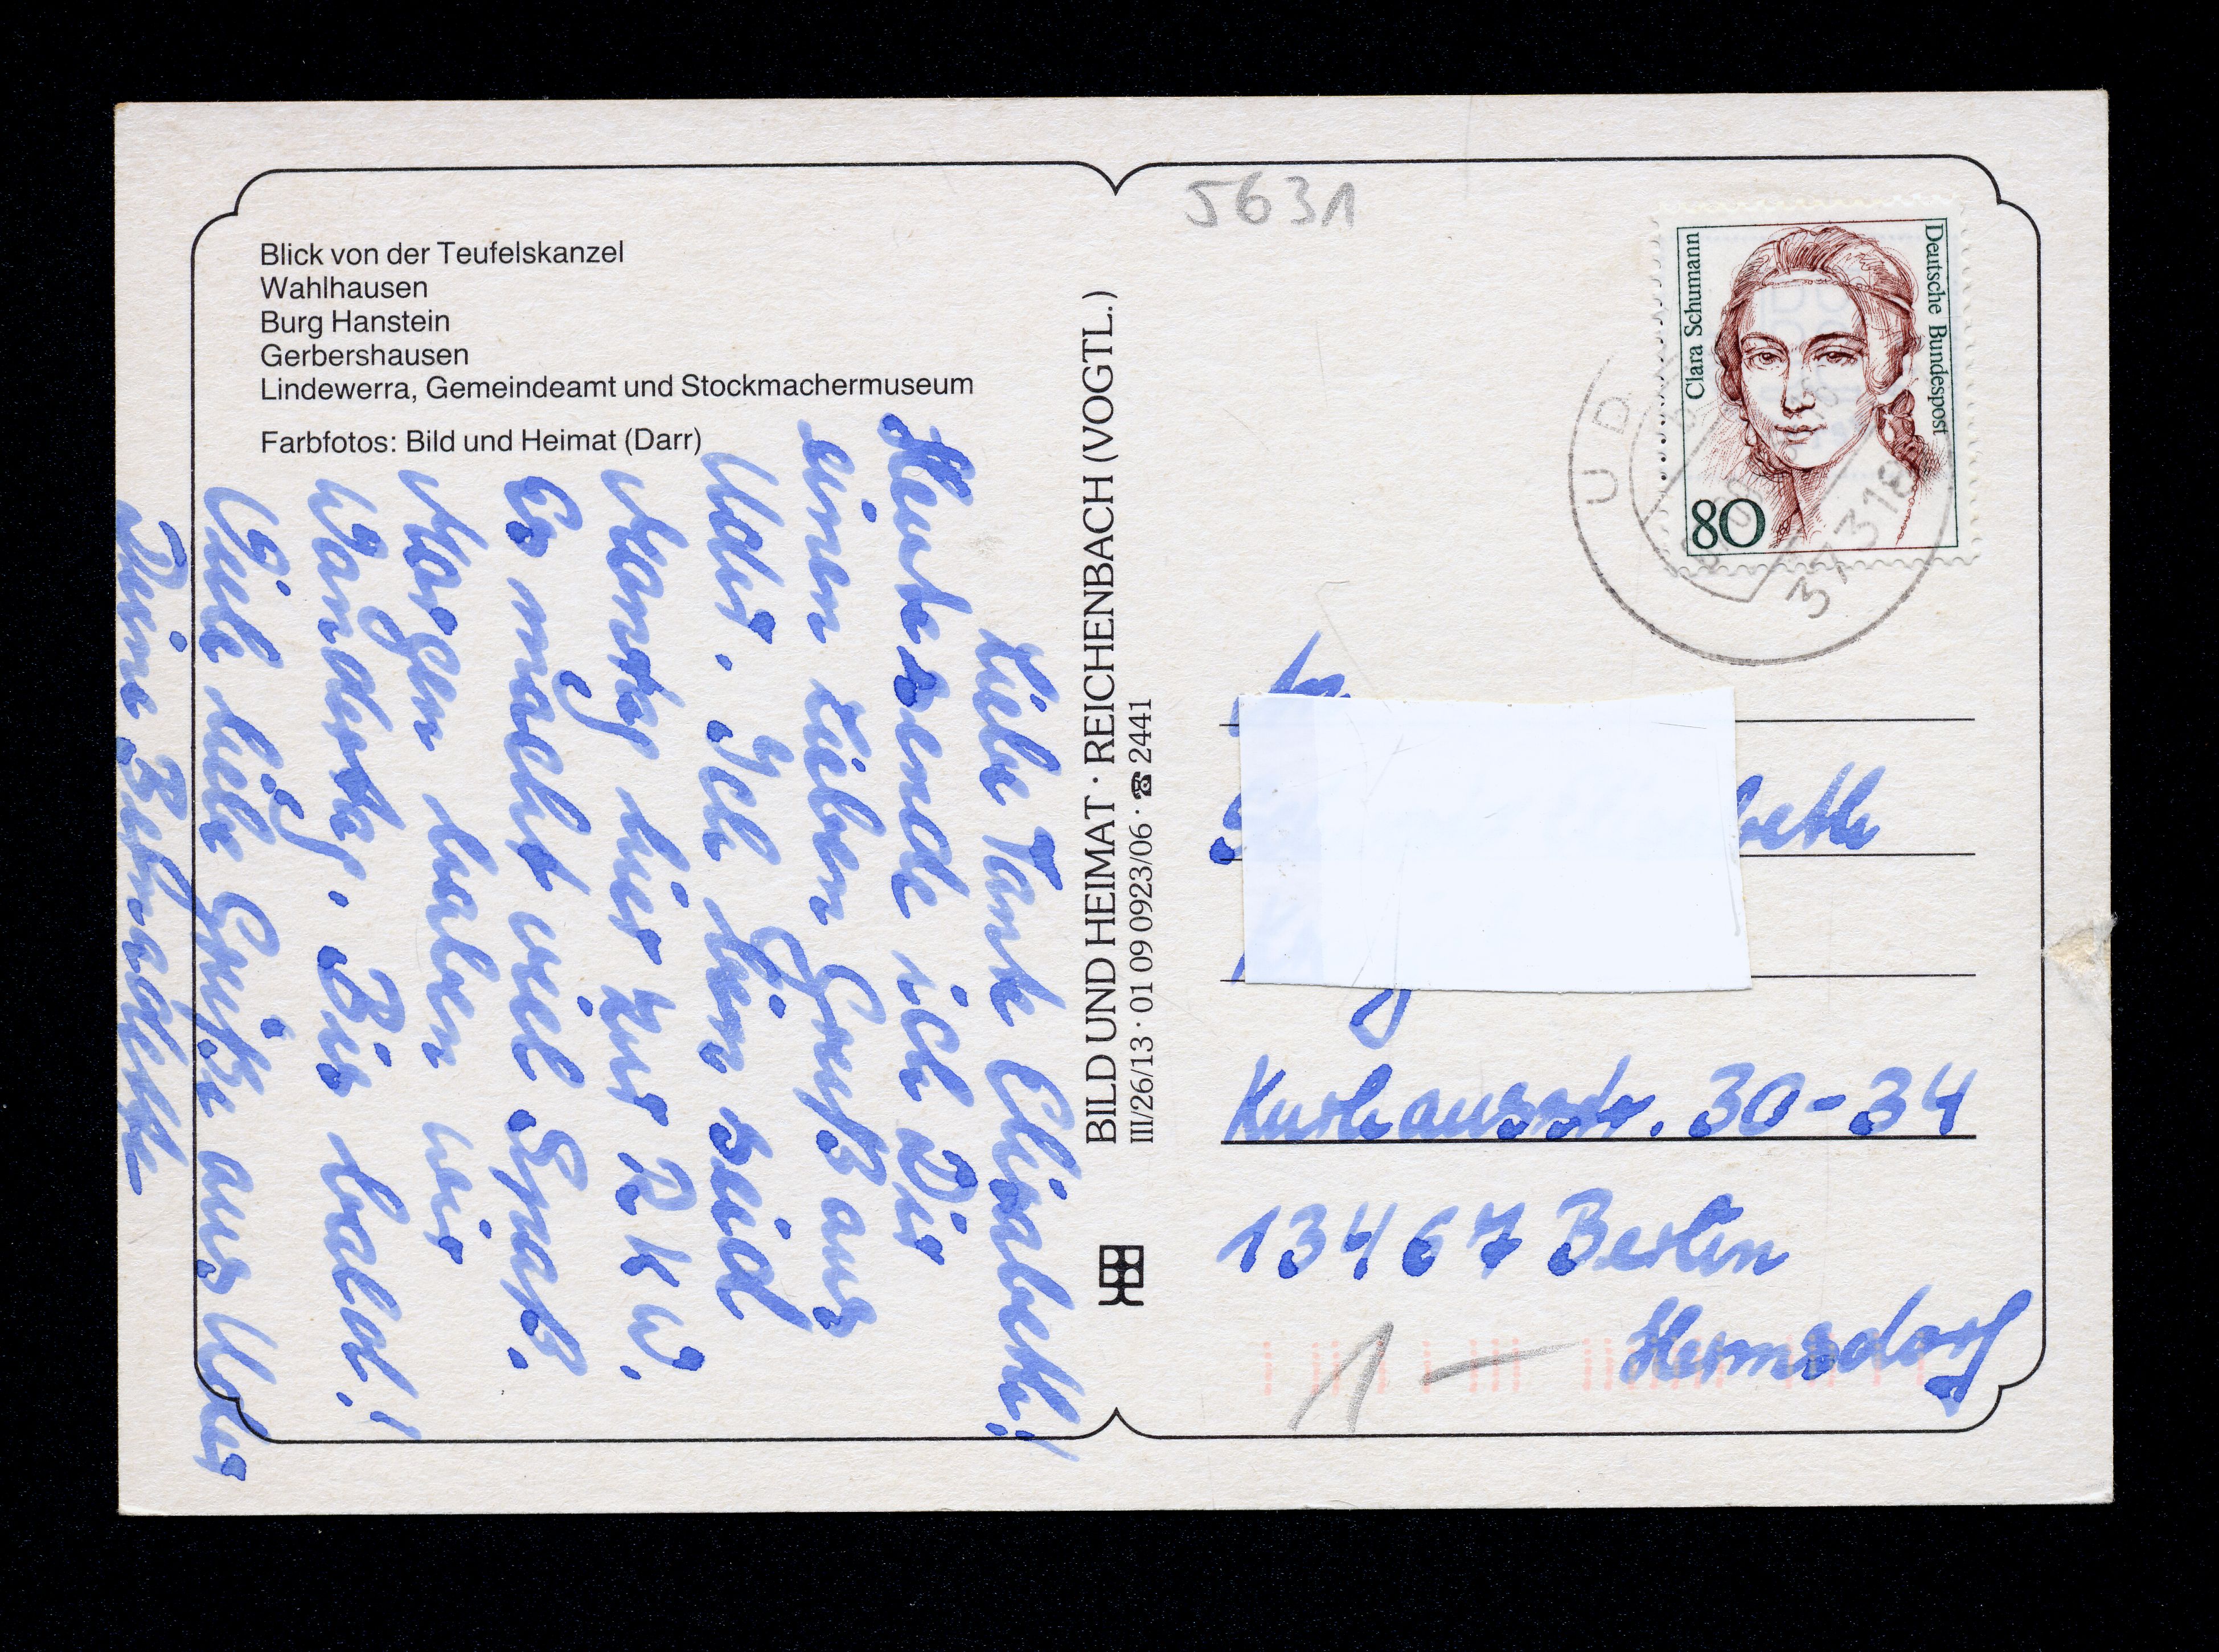 Blick von der Teufelskanzel
Wahlhausen
Burg Hanstein
Gerbershausen
Lindewerra, Gemeindeamt und Stockmachermuseum
Farbfotos: Bild und Heimat (Darr)
Liebe Tante Elisabeth!
Heute sende ich Dir
einen lieben Gruß aus
Uder. Ich bin seid
Montag hier zur RKW.
Es macht viel Spaß.
Morgen haben wir
Wandertag. Bis bald!
Viele liebe Grüße aus Uder
Deine Bernadette
BILD UND HEIMAT · REICHENBACH (VOGTL.)
III/26/13 · 01 09 0923/06 · ☎ 2441
5631
Clara Schumann
Deutsche Bundespost
80
UD
37318
beth
Kurhausstr. 30-34
13467 Berlin
Hermsdorf
1 —